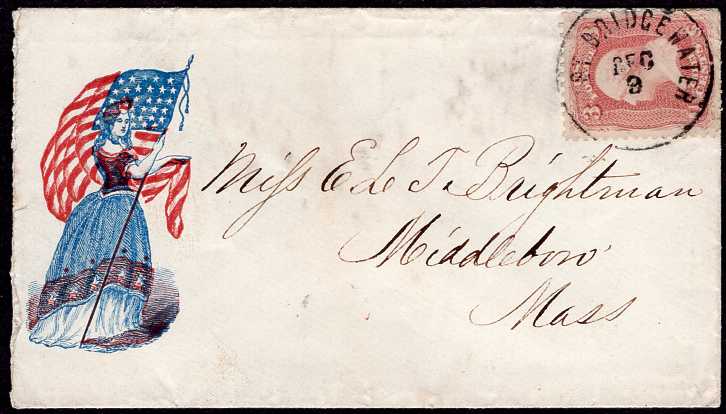 BRIDGEWATER
DEC
9
3
Miss E L T. Brightman
Middleboro'
Mass